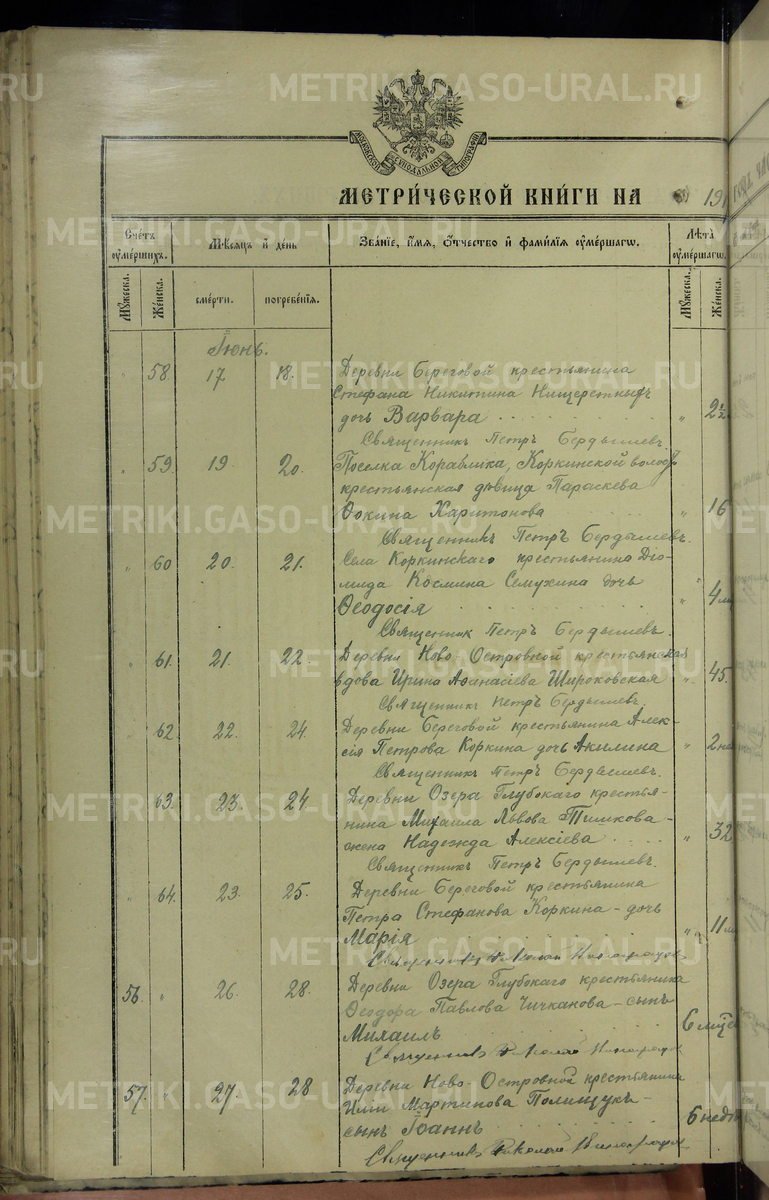 МОСКОВСКОЙ СѴНОДАЛЬНОЙ ТИПОГРАФІИ
МЕТРИ́ЧЕСКОЙ КНИ́ГИ НА 19
Сче́тъ ᲂу҆ме́ршихъ.
Мѣ́сяцъ и҆ де́нь
Зва́нїе, и҆́мя, ѻ҆́тчество и҆ фами́лїя ᲂу҆ме́ршагѡ.
Лѣ́та ᲂу҆ме́ршагѡ.
Мꙋ́жеска. Же́нска. сме́рти. погребе́нїѧ. Мꙋ́жеска. Же́нска.
Іюнь.
" 58 17 18. Деревни Береговой крестьянина
Стефана Никитина
дочь Варвара " 2½
Священникъ Петръ Бердышевъ
" 59 19. 20. Поселка Коравлика, Коркинской волости
крестьянская дѣвица Параскева
Фокина Харитонова " 16
Священникъ Петръ Бердышевъ.
" 60 20. 21. Села Коркинскаго крестьянина Дио-
мида Космина Семухина дочь
Ѳеодосія " 4
Священник Петръ Бердышевъ.
" 61. 21. 22. Деревни Ново-Островной крестьянская
вдова Ирина Аѳанасіева Широковская " 45.
Священникъ Петръ Бердышевъ
" 62. 22. 24. Деревни Береговой крестьянина Алек-
сія Петрова Коркина дочь Акилина " 2
Священникъ Петръ Бердышевъ.
" 63. 23. 24. Деревни Озера Глубокаго крестья-
нина Михаила Львова Тишкова-
жена Надежда Алексіева " 32
Священникъ Петръ Бердышевъ.
" 64. 23. 25. Деревни Береговой крестьянина
Петра Стефанова Коркина - дочь
Марія " 11
Священникъ Николай
56. " 26. 28. Деревни Озера Глубокаго крестьянина
Ѳеодора Павлова Чичканова - сынъ
Михаилъ 6
Священникъ Николай
57. " 27. 28 Деревни Ново-Островной крестьянина
Иліи Мартинова Полищукъ-
сынъ Іоаннъ 6
Священникъ Николай
METRIKI.GASO-URAL.RU